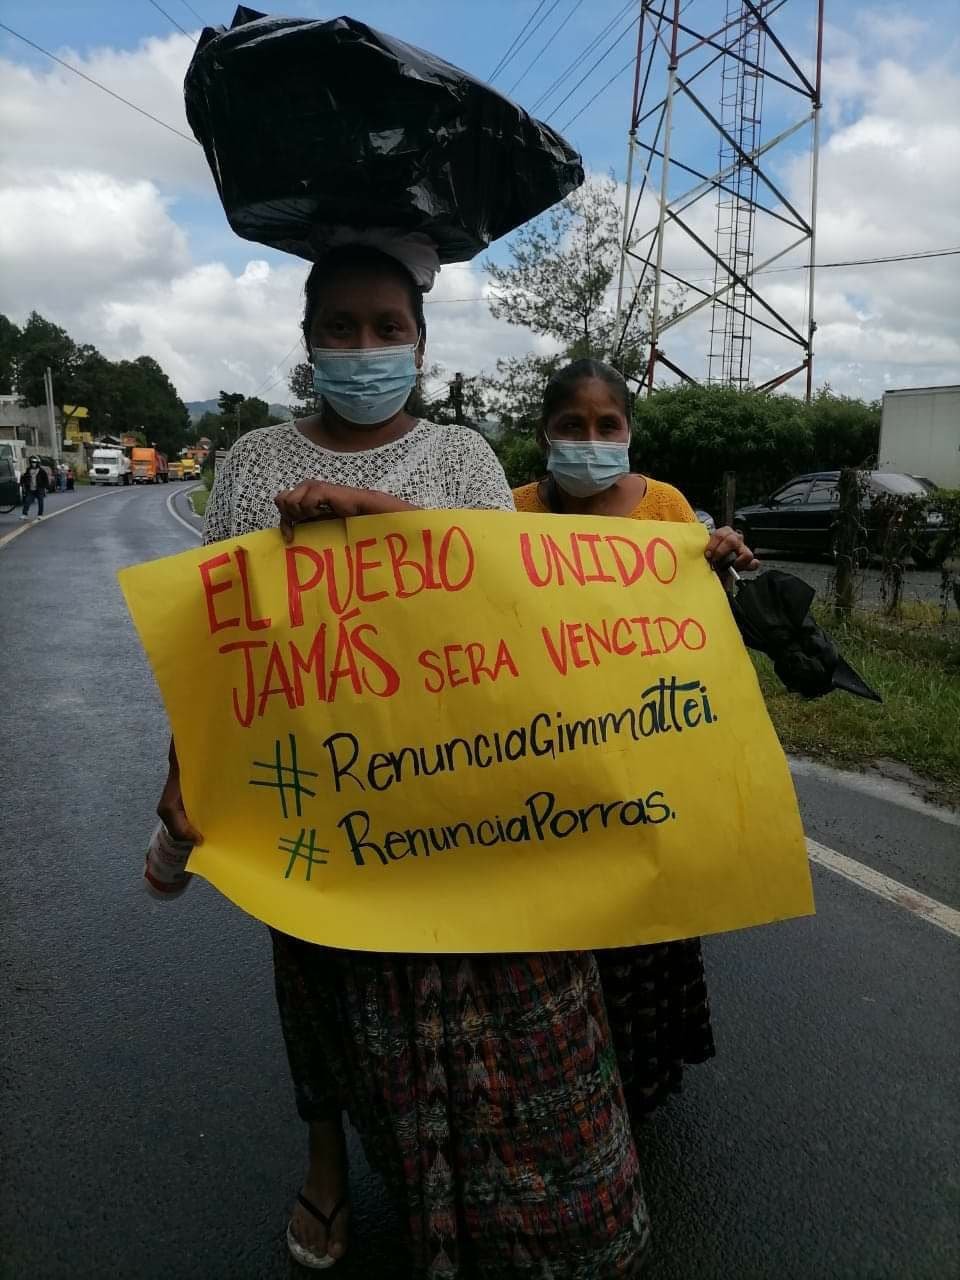 EL PUEBLO UNIDO
JAMÁS SERA VENCIDO
#RenunciaGimmattei.
#RenunciaPorras.